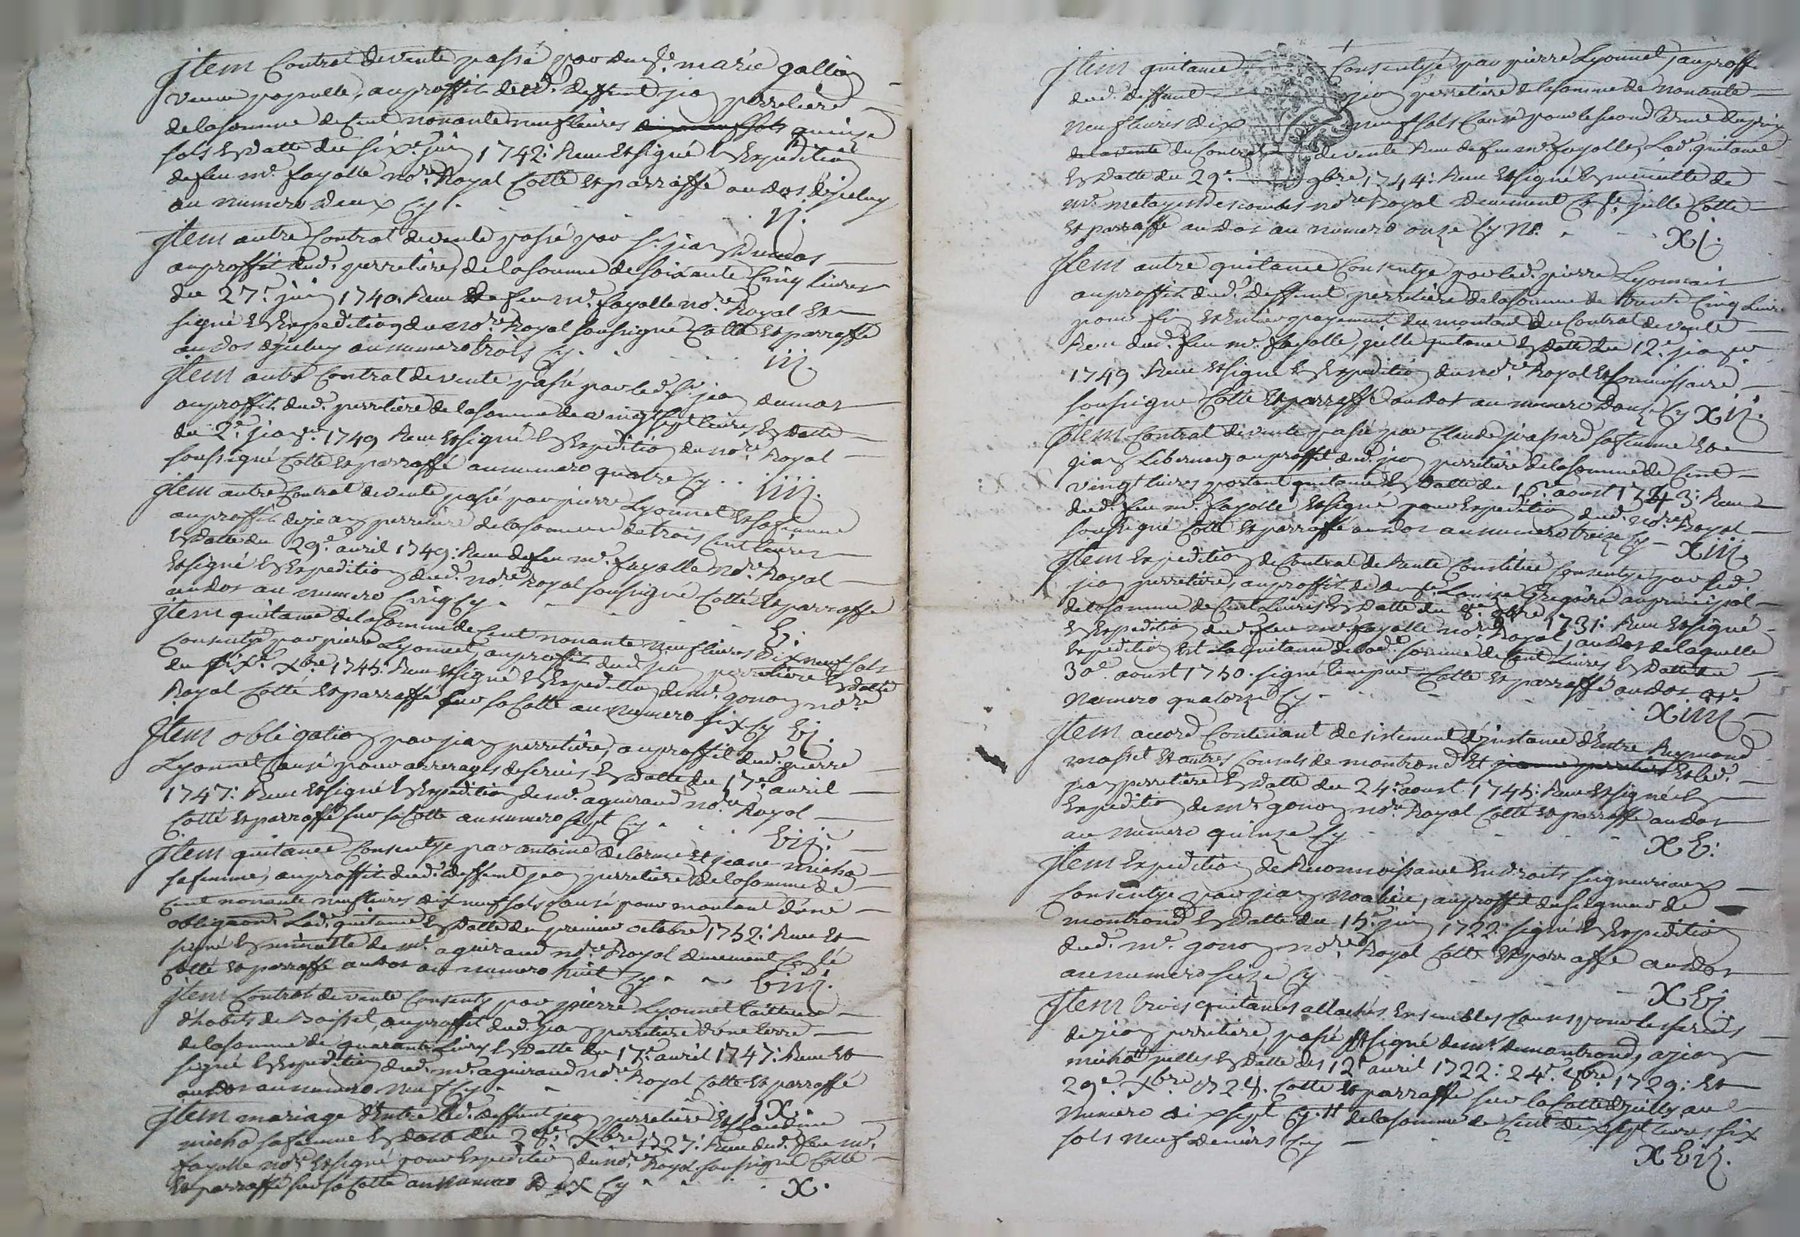 Item Contrat de vente passé par dud. marie gallion
veuve papulle, au proffit dud. deffunt jean perretiere
de la somme de Cent nonante neuf livres quinse
sols En datte du six juin 1742: Reçu Et signé En Expedition
de feu Me. fayolle nore. Royal Cotté et parraffé au dos d'jceluy
au numero deux Cy ij.
Item autre Contrat de vente passé par sr. jean dumas
au proffit dud. perretiere, de la somme de soixante Cinq livres
du 27e. juin 1740. Reçu de feu Me. fayolle nore. Royal Et
signé En Expedition du nore. Royal soussigné Cotté et parraffé
au dos djceluy au numero trois Cy iij.
Item autre Contrat de vente passé par led. sr. jean dumas
au proffit dud. perretiere de la somme de vingt sept livres En datte
du 2e. janr. 1749 Reçu Et signé En Expedition du nore. Royal
soussigné Cotté et parraffé au numero quatre Cy iiij.
Item autre Contrat de vente passé par pierre Lyonnet Et sa femme
au proffit de jean perretiere de la somme de trois Cent livres
En datte du 29e. avril 1749: Reçu de feu Me. fayolle nore. Royal
Et signé En Expedition dud. nore. Royal soussigné Cotté et parraffé
au dos au numero Cinq Cy V.
Item quitance de la somme de Cent nonante neuf livres dix neuf sols
Consentye par pierre Lyonnet, au proffit dud. jean perretiere En datte
du six Xbre 1745: Reçu Et signé En Expedition de Me. gonon nore.
Royal Cotté et parraffé sur sa Cotte au numero six Cy Vj.
Item obligation par jean perretiere, au proffit dud. pierre
Lyonnet Causé pour arrerages de servis En datte du 17e. avril
1747: Reçu Et signé En Expedition de Me. aguiraud nore. Royal
Cotté et parraffé sur sa Cotte au numero sept Cy Vij.
Item quitance Consentye par antoine delorme et jeane micha
sa femme, au proffit dud. deffunt jean perretiere de la somme de
Cent nonante neuf livres dix neuf sols Causé pour montant d'une
obligaon. Lad. quitance En datte du premier octobre 1752: Reçu Et
signé En minutte de Me. aguiraud nore. Royal duement Cople
Cotté et parraffé au dos au numero huit Cy Viij.
Item Contrat de vente Consenty par pierre Lyonnet tailleur
d'habits de Boisset, au proffit dud. jean perretiere d'une terre
de la somme de quarante Livres En datte du 17e. avril 1747: Reçu Et
signé En Expedition dud. Me. aguiraud nore. Royal Cotté et parraffé
au dos au numero neuf Cy iX.
Item mariage d'Entre led. deffunt jean perretiere Et Claudine
micha sa femme En datte du Xbre 1727: Reçu dud. feu Me.
fayolle nore. Et signé pour Expedition du nore. Royal soussigné Cotté
Et parraffé sur sa Cotte au numero Dix Cy X.
Item quitance Consentye par pierre Lyonnet, au proffit
dud. deffunt jean perretiere de la somme de nonante
neuf livres dix neuf sols Causé pour le second terme du prix
du Contrat de vente Reçu de feu Me. fayolle, Lad. quitance
En datte du 29e. 9bre. 1744: Reçu Et signé En minutte de
Me. nore. Royal duement jcelle Cotté
et parraffé au dos au numero onze Cy No. Xj.
Item autre quitance Consentye par led. pierre Lyonnois
au proffit dud. deffunt perretiere de la somme de trente Cinq livres
pour fin et Entier payement du montant du Contrat de vente
Reçu dud. feu Me. fayolle, jcelle quitance En datte du 12e. janvr.
1749 Reçu Et signé En Expedition du nore. Royal Et Commissaire
soussigné Cotté et parraffé au dos au numero Douze Cy Xij.
Item Contrat de vente passé par Claude sa femme Et
jean au proffit dud. jean perretiere de la somme de Cent
vingt livres portant quitance En datte du aoust 1743: Reçu
dud. feu Me. fayolle Et signé pour Expedition dud. nore. Royal
soussigné Cotté et parraffé au dos au numero treize Cy Xiij.
Item Expedition de Contrat de Rente Constituée Consentye par led.
jean perretiere, au proffit de Louise Gregoire au principal
de la somme de Cent Livres En datte du 8bre 1731: Reçu Et signé
En Expedition dud. feu Me. fayolle nore. Royal au dos de laquelle
Expedition Est La quitance de lad. somme de Cent Livres En datte du
30e. aoust 1750. signé Cotté et parraffé au dos au
numero quatorze Cy Xiiij
Item accord Contenant desistement d'jnstance d'Entre Reymond
masset Et autres Consuls de montrond Et led.
jean perretiere En datte du 24e. aoust 1745: Reçu Et signé En
Expedition de Me. gonon nore. Royal Cotté et parraffé au dos
au numero quinze Cy XV.
Item Expedition de Reconnoissance En droits seigneuriaux
Consentye par jean au proffit du seigneur de
montrond En datte du 15e. juin 1722. signé En Expedition
dud. Me. gonon nore. Royal Cotté et parraffé au dos
au numero seize Cy XVj.
Item trois quitances attachés Ensembles Causés pour les servis
de jean perretiere, passé Et signé de Mr. demontrond, a jean
micha jcelles En datte des 12e. avril 1722: 24e. 9bre. 1729: Et
29e. Xbre Cotté et parraffé sur la Cotte djcelles au
numero dix sept Cy de la somme de Cent dix sept livres six
sols neuf deniers Cy XVij.